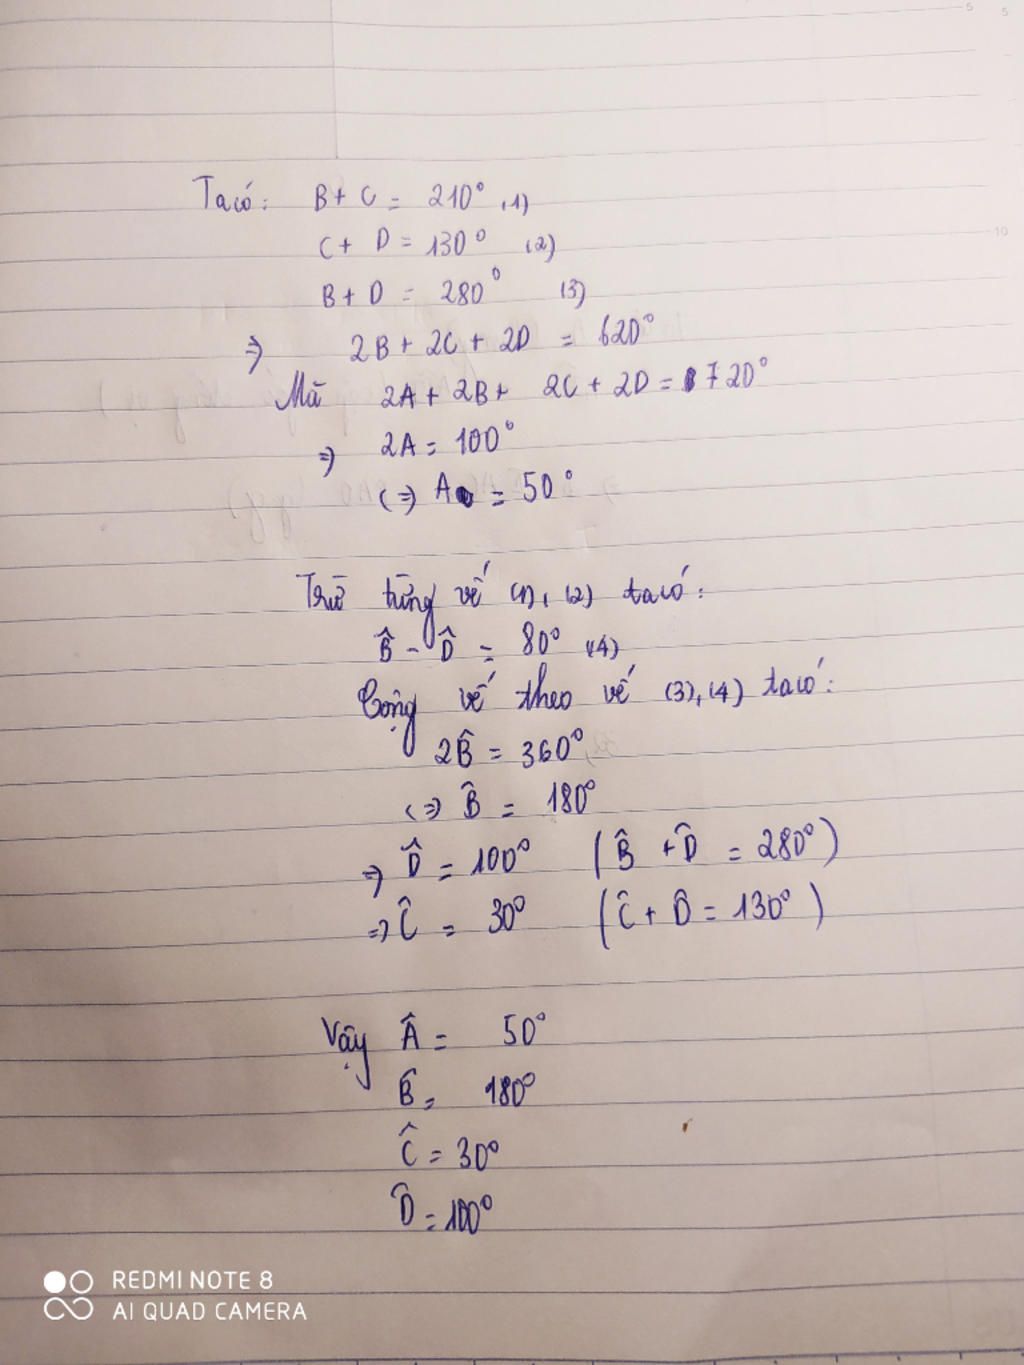 Ta có: B + C = 210° (1)
C + D = 130° (2)
B + D = 280° (3)
=> 2B + 2C + 2D = 620°
Mà 2A + 2B + 2C + 2D = 720°
=> 2A = 100°
<=> A = 50°
Trừ từng vế (1), (2) ta có:
B̂ - D̂ = 80° (4)
Cộng vế theo vế (3), (4) ta có:
2B̂ = 360°
<=> B̂ = 180°
=> D̂ = 100° (B̂ + D̂ = 280°)
=> Ĉ = 30° (Ĉ + D̂ = 130°)
Vậy Â = 50°
B̂ = 180°
Ĉ = 30°
D̂ = 100°
REDMI NOTE 8
AI QUAD CAMERA